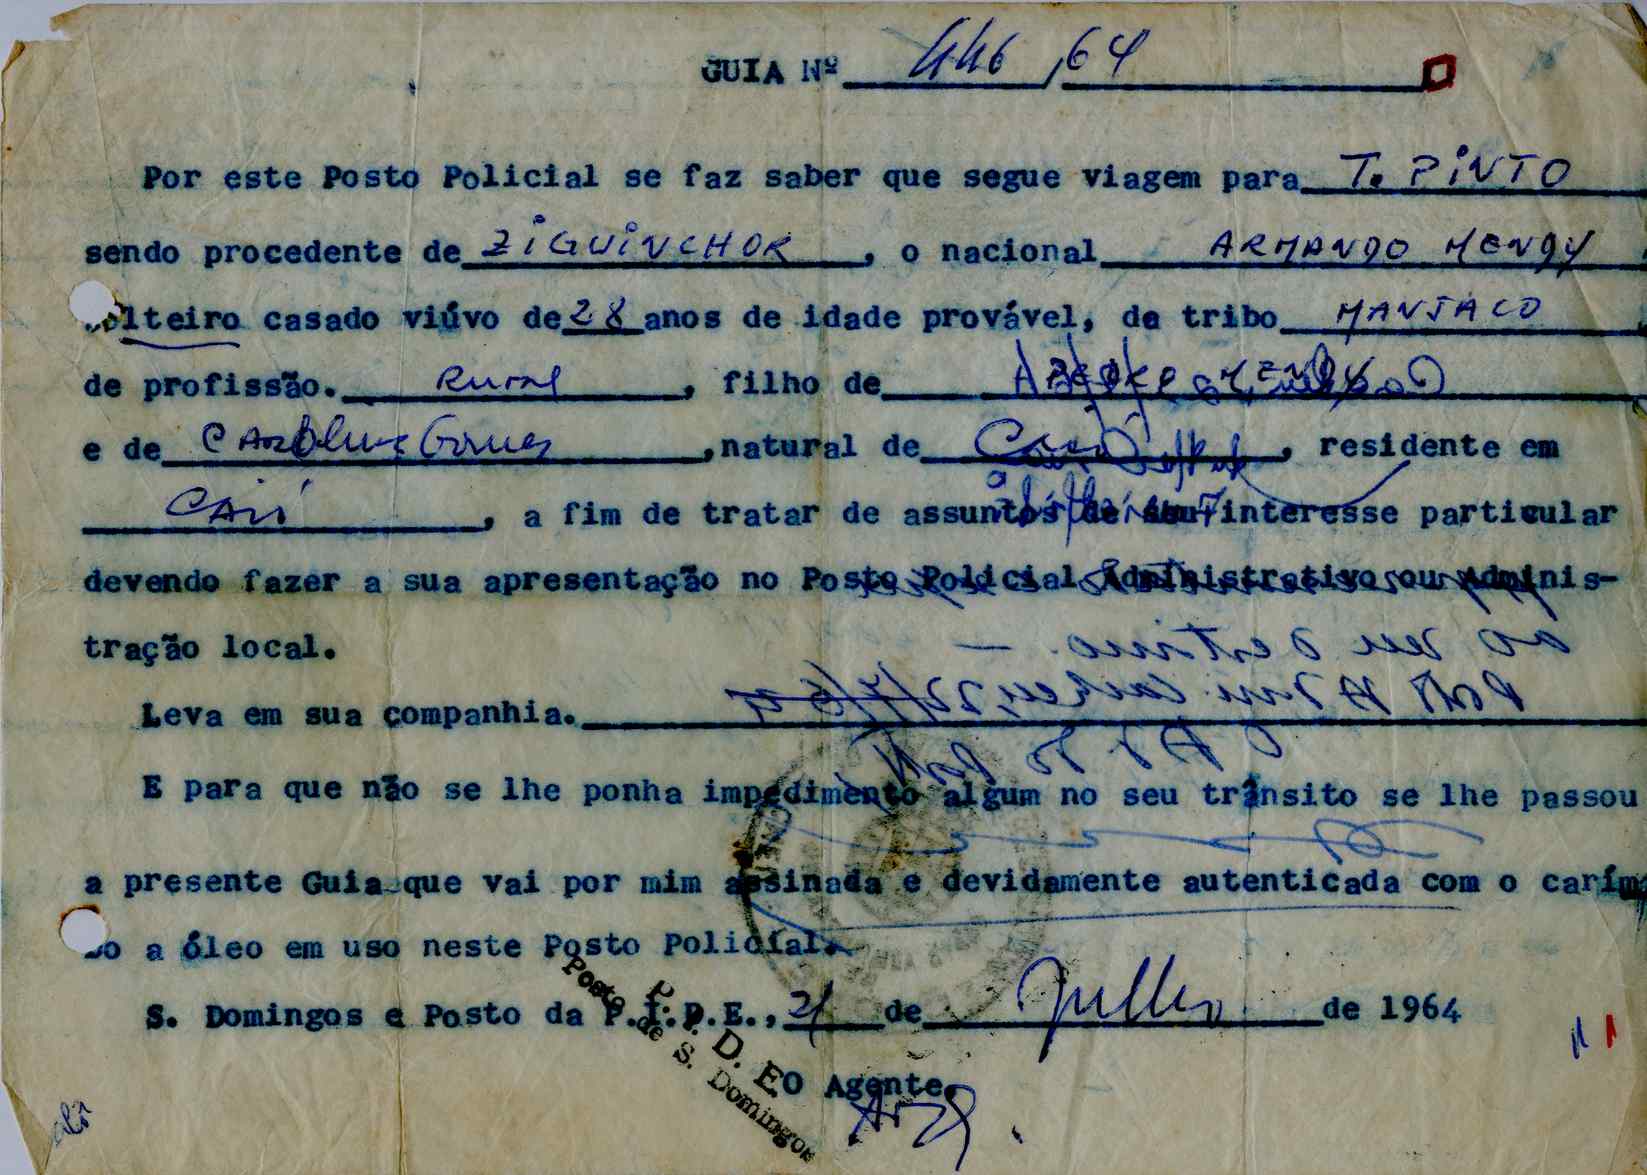 GUIA Nº 446/64
Por este Posto Policial se faz saber que segue viagem para T. PINTO
sendo procedente de ZIGUINCHOR, o nacional ARMANDO MENDY
solteiro casado viúvo de 28 anos de idade provável, da tribo MANJACO
de profissão. Rural, filho de MENDY
e de CAROLINE Gomes, natural de, residente em
CAIÓ, a fim de tratar de assuntos de seu interesse particular
devendo fazer a sua apresentação no Posto Policial Administrativo ou Adminis-
tração local.
ao seu destino. —
22/7/64
Leva em sua companhia.
E para que não se lhe ponha impedimento algum no seu trânsito se lhe passou
a presente Guia que vai por mim assinada e devidamente autenticada com o carím-
bo a óleo em uso neste Posto Policial.
S. Domingos e Posto da P.I.D.E., 21 de Julho de 1964
P. I. D. E.
Posto de S. Domingos
O Agente,